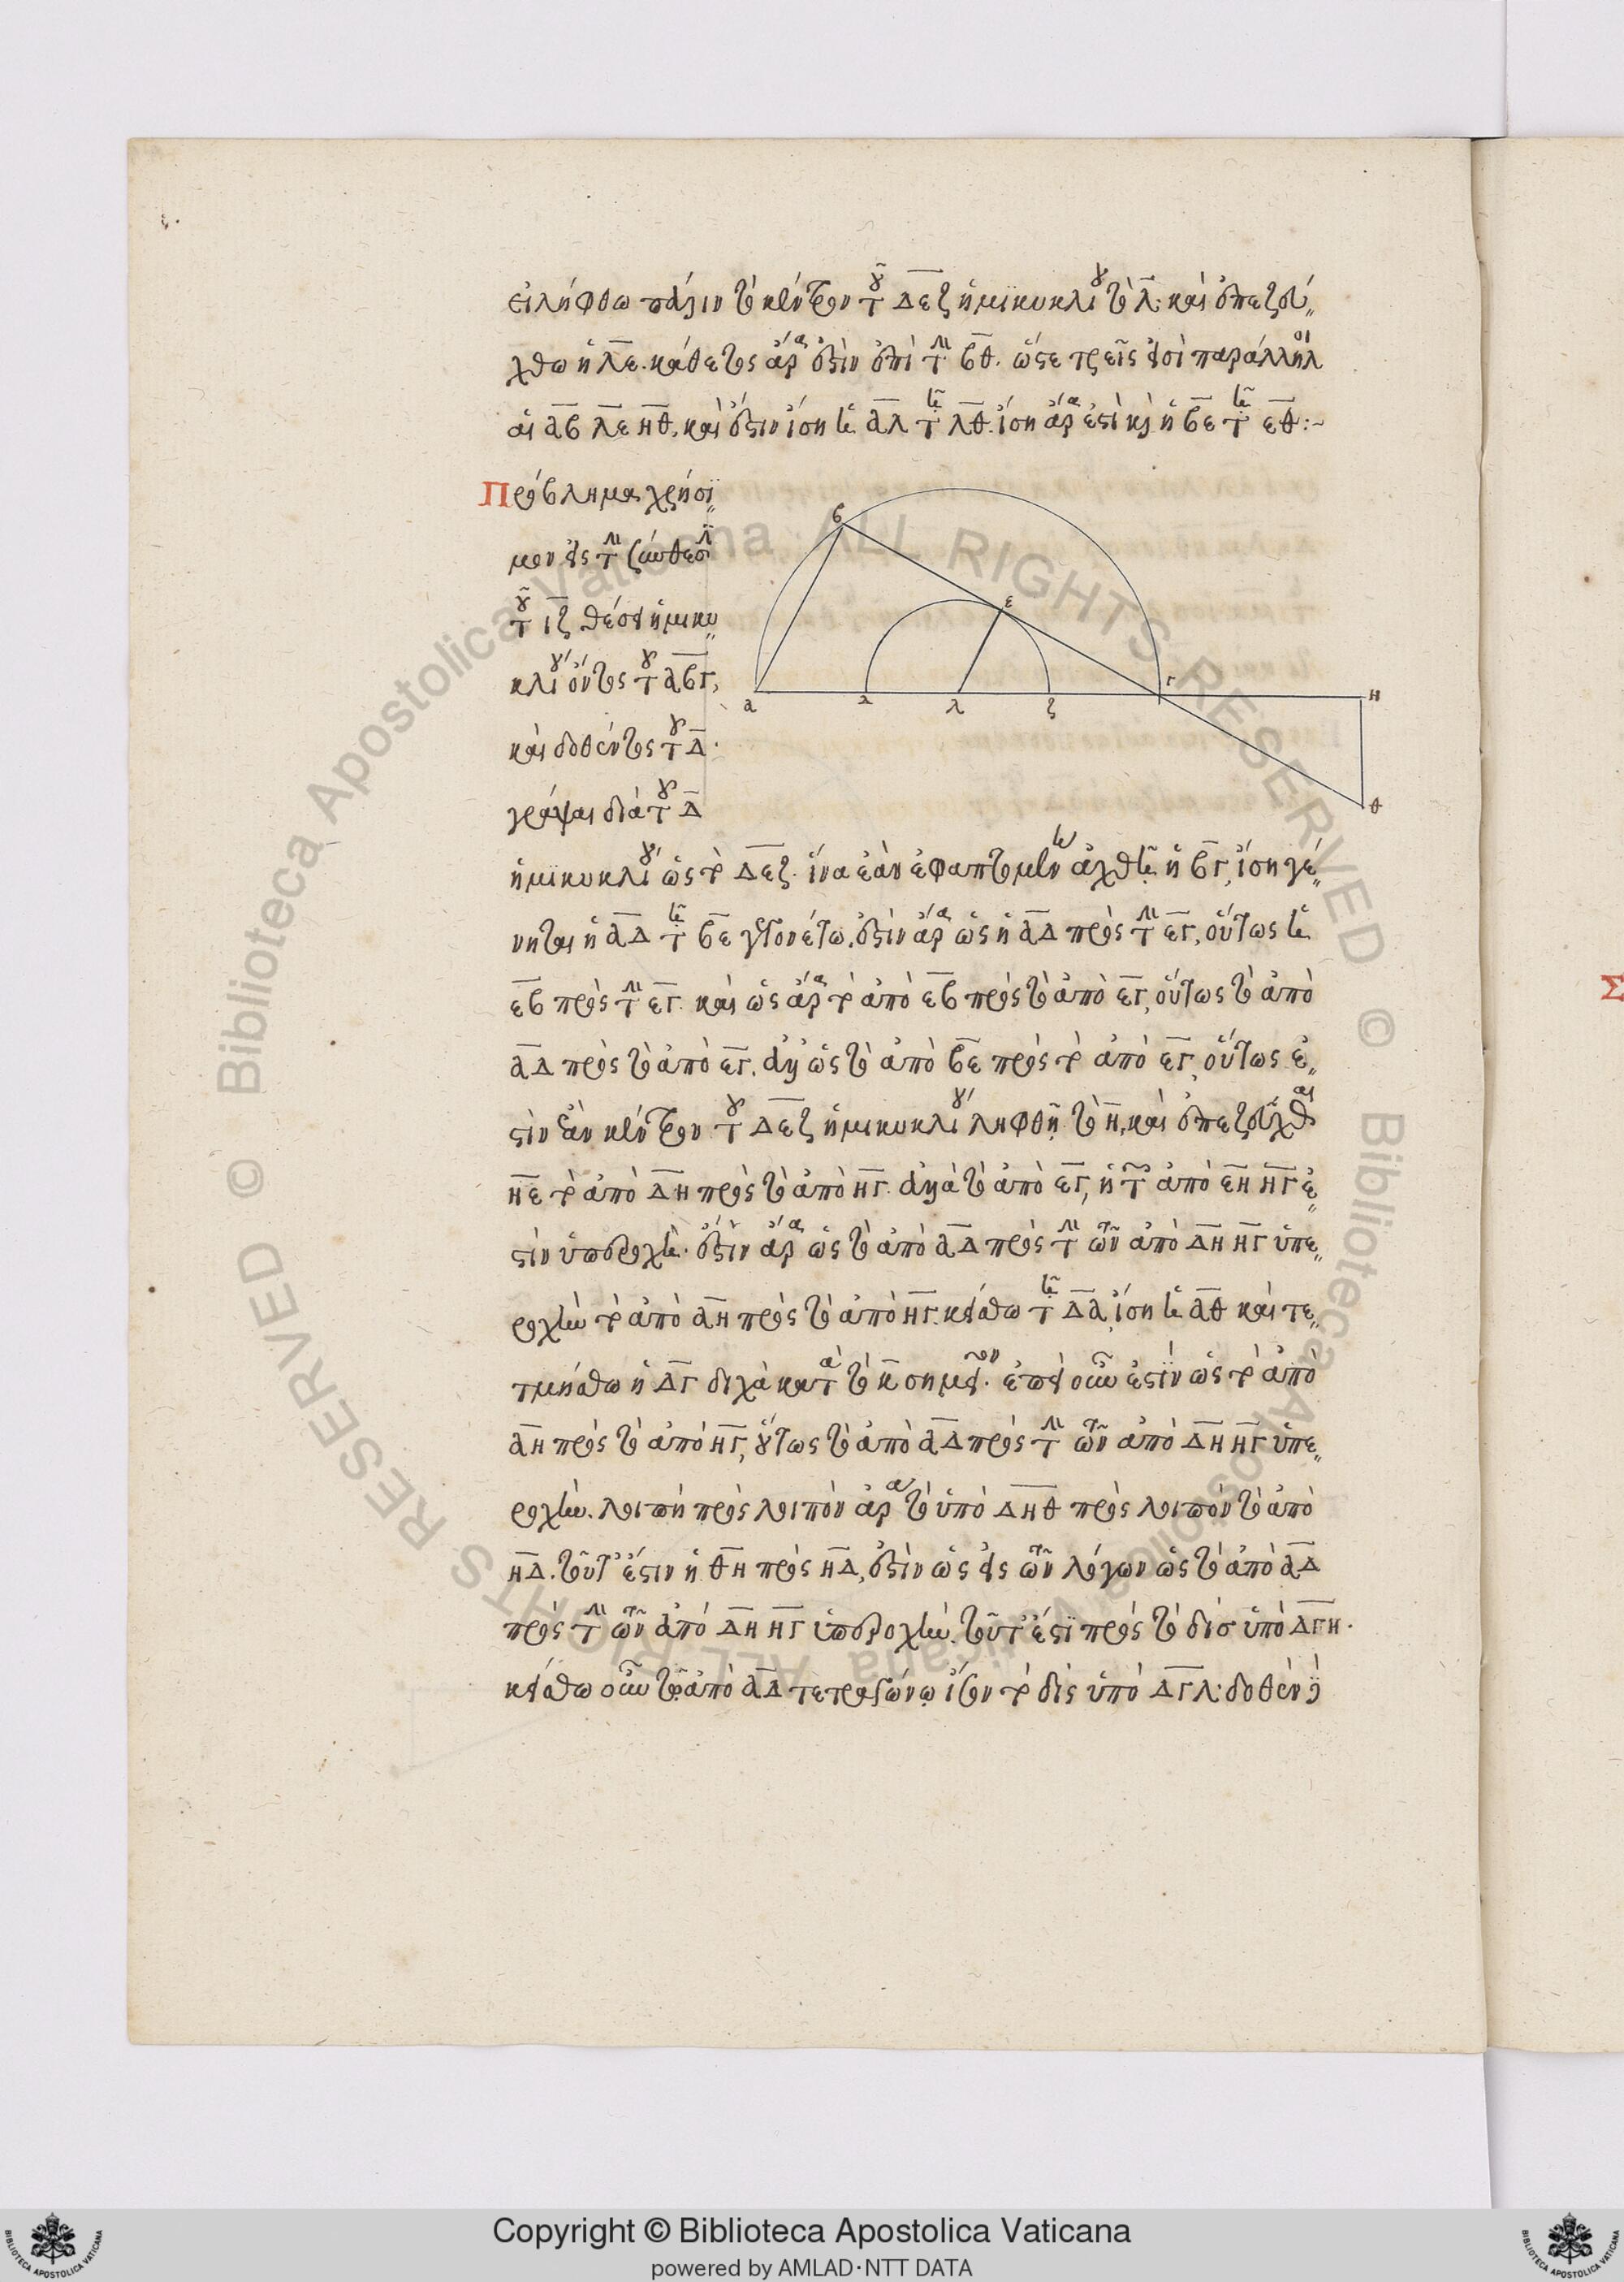 εἰλήφθω πάλιν τὸ κέντρον τοῦ ΔΕΖ ἡμικυκλίου τὸ Λ· καὶ ἐπεζεύ〃
χθω ἡ ΛΕ. κάθετος ἄρα ἐστὶν ἐπὶ τὴν ΒΘ. ὥστε τρεῖς εἰσὶ παράλληλοι
αἱ ΑΒ ΛΕ ΗΘ, καὶ ἔστιν ἴση ἡ ΑΛ τῇ ΛΘ. ἴση ἄρα ἐστὶ καὶ ἡ ΒΕ τῇ ΕΘ:~
Πρόβλημα χρήσι〃
μον εἰς τὴν σύνθεσιν
τοῦ ΙΖ θέσει ἡμικυ〃
κλίου ὄντος τοῦ ΑΒΓ,
καὶ δοθέντος τοῦ Δ·
γράψαι διὰ τοῦ Δ
Β
Ε
Α
Δ
Λ
Ζ
Γ
Η
Θ
ἡμικυκλίου ὡς τὸ ΔΕΖ. ἵνα ἐὰν ἐφαπτομένη ἀχθῇ ἡ ΒΓ, ἴση γέ〃
νηται ἡ ΑΔ τῇ ΒΕ γεγονέτω. ἔστιν ἄρα ὡς ἡ ΑΔ πρὸς τὴν ΕΓ, οὕτως ἡ
ΕΒ πρὸς τὴν ΕΓ. καὶ ὡς ἄρα τὸ ἀπὸ ΕΒ πρὸς τὸ ἀπὸ ΕΓ, οὕτως τὸ ἀπὸ
ΑΔ πρὸς τὸ ἀπὸ ΕΓ. ἀλλ' ὡς τὸ ἀπὸ ΒΕ πρὸς τὸ ἀπὸ ΕΓ, οὕτως ἐ〃
στὶν ἐὰν κέντρον τοῦ ΔΕΖ ἡμικυκλίου ληφθῇ τὸ Η, καὶ ἐπεζεύχθαι
ΗΕ τὸ ἀπὸ ΔΗ πρὸς τὸ ἀπὸ ΗΓ. ἀλλὰ τὸ ἀπὸ ΕΓ, ἡ τῶν ἀπὸ ΕΗ ΗΓ ἐ〃
στὶν ὑπεροχή. ἔστιν ἄρα ὡς τὸ ἀπὸ ΑΔ πρὸς τὴν τῶν ἀπὸ ΔΗ ΗΓ ὑπε〃
ροχὴν τὸ ἀπὸ ΑΗ πρὸς τὸ ἀπὸ ΗΓ. κείσθω τῇ ΔΑ, ἴση ἡ ΑΘ καὶ τε〃
τμήσθω ἡ ΔΓ δίχα κατὰ τὸ Κ σημεῖον. ἐπεὶ οὖν ἐστὶν ὡς τὸ ἀπὸ
ΑΗ πρὸς τὸ ἀπὸ ΗΓ, οὕτως τὸ ἀπὸ ΑΔ πρὸς τὴν τῶν ἀπὸ ΔΗ ΗΓ ὑπε〃
ροχήν. λοιπὴ πρὸς λοιπὸν ἄρα τὸ ὑπὸ ΔΗΘ πρὸς λοιπὸν τὸ ἀπὸ
ΗΔ. τουτέστιν ἡ ΘΗ πρὸς ΗΔ, ἐστὶν ὡς εἷς τῶν λόγων ὡς τὸ ἀπὸ ΑΔ
πρὸς τὴν τῶν ἀπὸ ΔΗ ΗΓ ὑπεροχήν. τουτέστι πρὸς τὸ δὶσ ὑπὸ ΔΓΗ.
κείσθω οὖν τῷ ἀπὸ ΑΔ τετραγώνῳ ἴσον τὸ δὶς ὑπὸ ΔΓΛ· δοθὲν
Σ
Copyright © Biblioteca Apostolica Vaticana
powered by AMLAD·NTT DATA